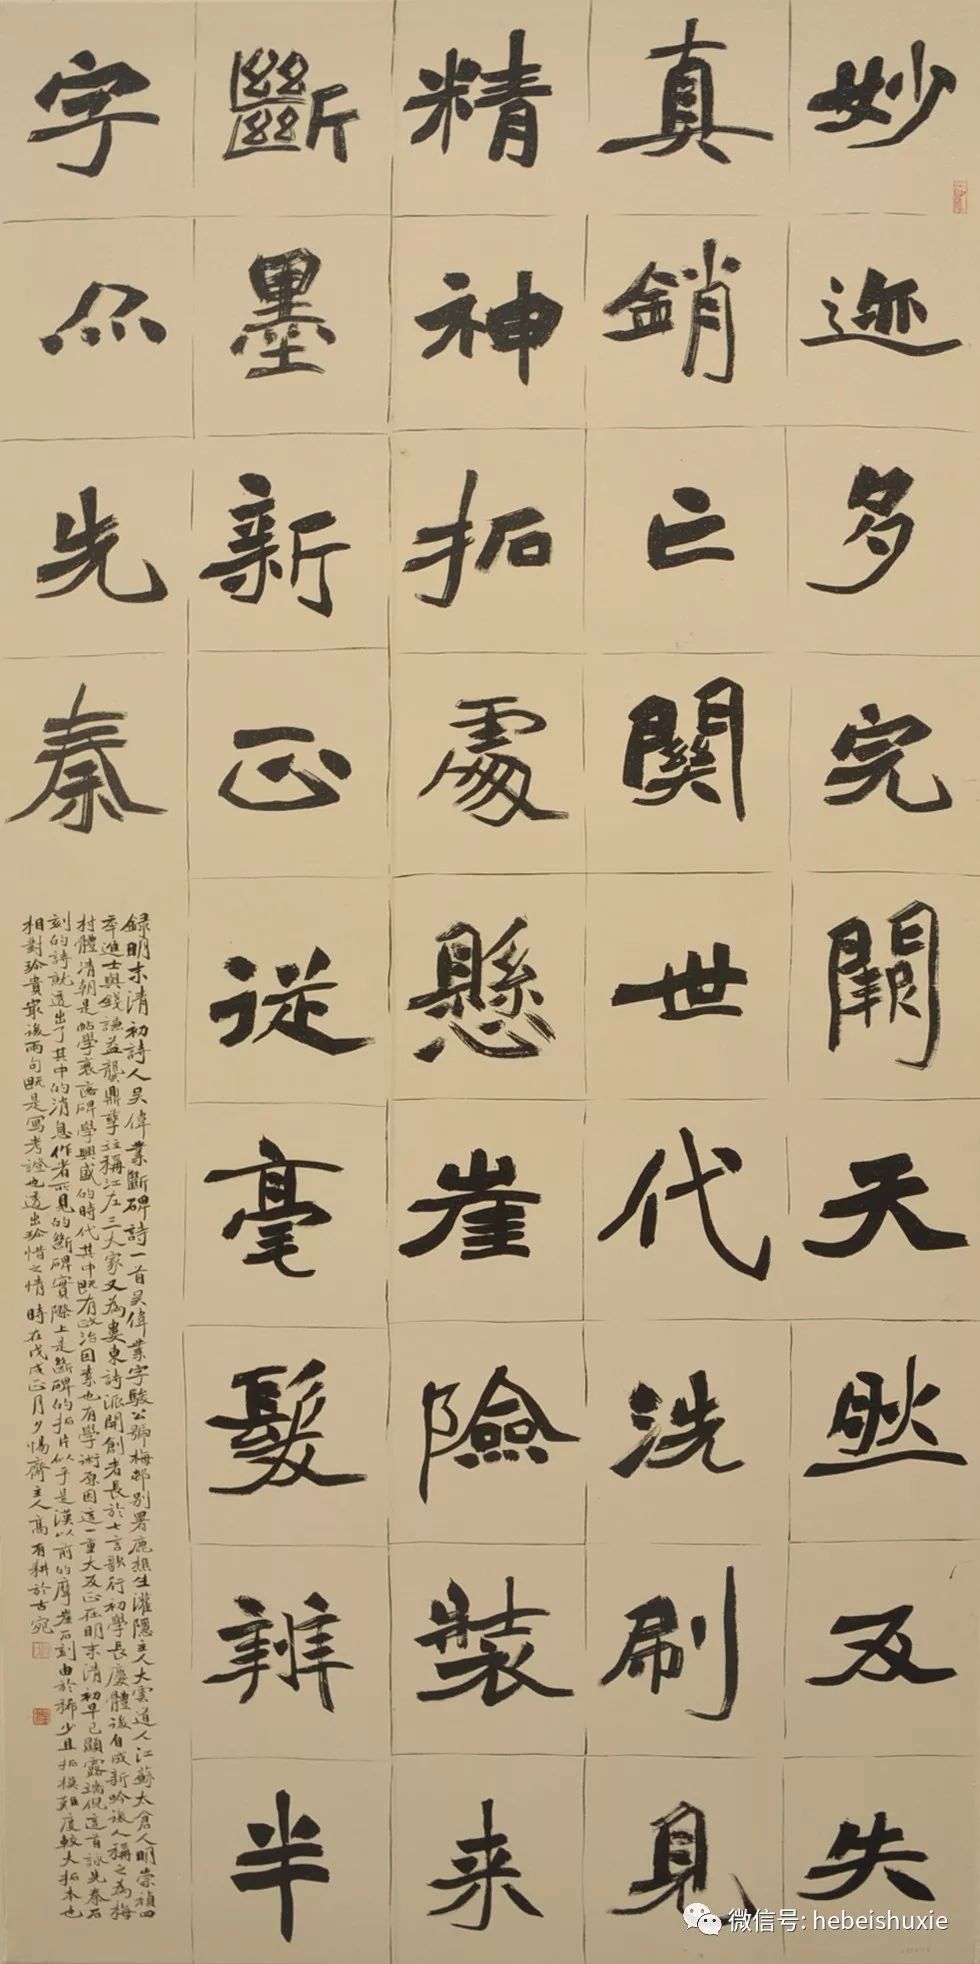 妙迹多完闕天然反失
真銷亡關世代洗刷見
精神拓處懸崖險裝来
斷墨新正從毫髮辨半
字尒先秦
録明末清初詩人吴偉業斷碑詩一首吴偉業字駿公號梅邨别署鹿樵生灌隱主人大雲道人江蘇太倉人明崇禎四
年進士與錢謙益龔鼎孳並稱江左三大家又為婁東詩派開創者長於七言歌行初學長慶體後自成新吟後人稱之為梅
村體清朝是帖學衰落碑學興盛的時代其中既有政治因素也有學術原因這一重大反正在明末清初早已顯露端倪這首詠先秦石
刻的詩就透出了其中的消息作者所見的斷碑實際上是斷碑的拓片似乎是漢以前的摩崖石刻由於稀少且拓模難度較大拓本也
相對珍貴最後兩句既是寫考證也透出珍惜之情時在戊戌正月夕惕齋主人高有耕於古宛
微信号: hebeishuxie